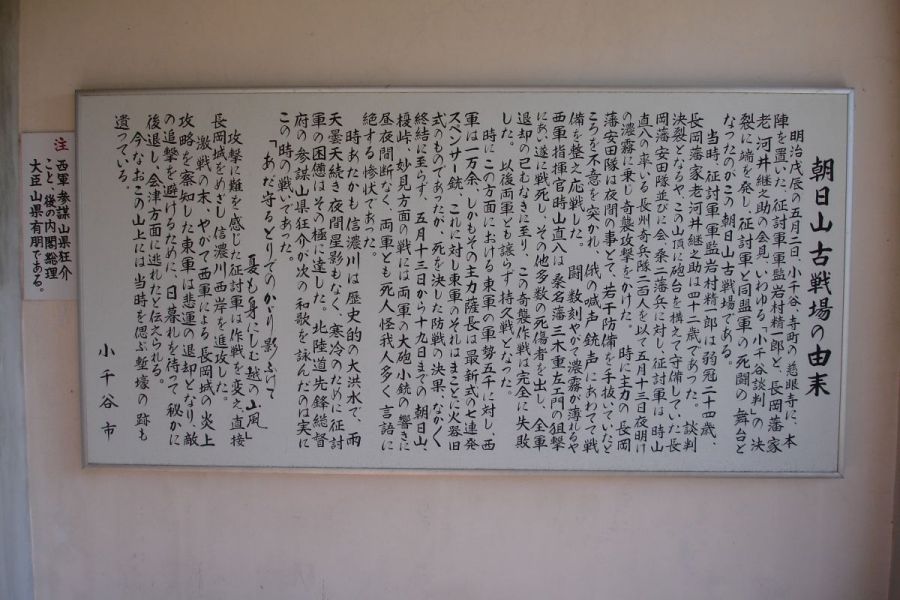 朝日山古戦場の由来
明治戊辰の五月二日、小千谷・寺町の慈眼寺に、本
陣を置いた、征討軍軍監岩村精一郎と、長岡藩家
老・河井継之助の会見、いわゆる「小千谷談判」の決
裂に端を発し、征討軍と同盟軍の死闘の舞台と
なったのがこの朝日山古戦場である。
当時、征討軍軍監岩村精一郎は弱冠二十四歳、
長岡藩家老河井継之助は四十二歳であった。談判
決裂となるや、この山頂に砲台を構えて守備していた長
岡藩安田隊並びに会、桑二藩兵に対し征討軍は、時山
直八の率いる長州奇兵隊二百人を以て五月十三日夜明け
の濃霧に乗じ奇襲攻撃をかけた。時に主力の長岡
藩安田隊は夜間の事とて、若干防備を手抜いていたと
ころを不意を突かれ、俄の喊声、銃声にあわてて戦
備を整え応戦した。闘い数刻やがて濃霧が薄れるや
西軍指揮官時山直八は桑名藩三木重左エ門の狙撃
にあい遂に戦死し、その他多数の死傷者を出し、全軍
退却の已むなきに至り、この奇襲作戦は完全に失敗
した。以後両軍とも譲らず持久戦となった。
時にこの方面における東軍の軍勢五千に対し、西
軍は一万余、しかもその主力薩長は最新式の七連発
スペンサー銃、これに対し東軍のそれはまことに火器旧
式のものであったが、死を決した防戦の決果、なかなか
終結に至らず、五月十三日から十九日までの朝日山、
榎峠、妙見方面の戦には両軍の大砲、小銃の響きに
昼夜間断なく、両軍とも死人怪我人多く言語に
絶する惨状であった。
時あたかも信濃川は歴史的の大洪水で、雨
天曇天続き夜間星影もなく、寒冷のために征討
軍の困憊はその極に達した。北陸道先鋒総督
府の参謀山県狂介が次の和歌を詠んだのは実に
この時の戦いであった。
「あだ守るとりでのかがり影ふけて
夏も身にしむ越の山風」
攻撃に難を感じた征討軍は作戦を変え、直接
長岡城をめざし信濃川西岸を進攻した。
激戦の末、やがて西軍による長岡城の炎上
攻略を察知した東軍は悲運の退却となり、敵
の追撃を避けるために、日暮れを待って秘かに
後退し、会津方面に逃れたと伝えられる。
今なおこの山上には当時を偲ぶ塹壕の跡も
遺っている。
小千谷市
注 西軍参謀山県狂介
こと、後の内閣総理
大臣山県有朋である。